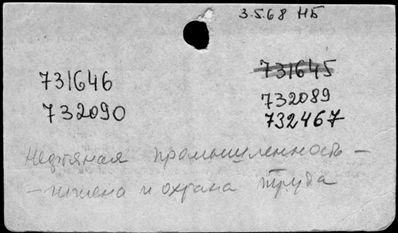 3.5.68 НБ
731646
731645
732090
732089
732467
Нефтяная промышленность -
- гигиена и охрана труда